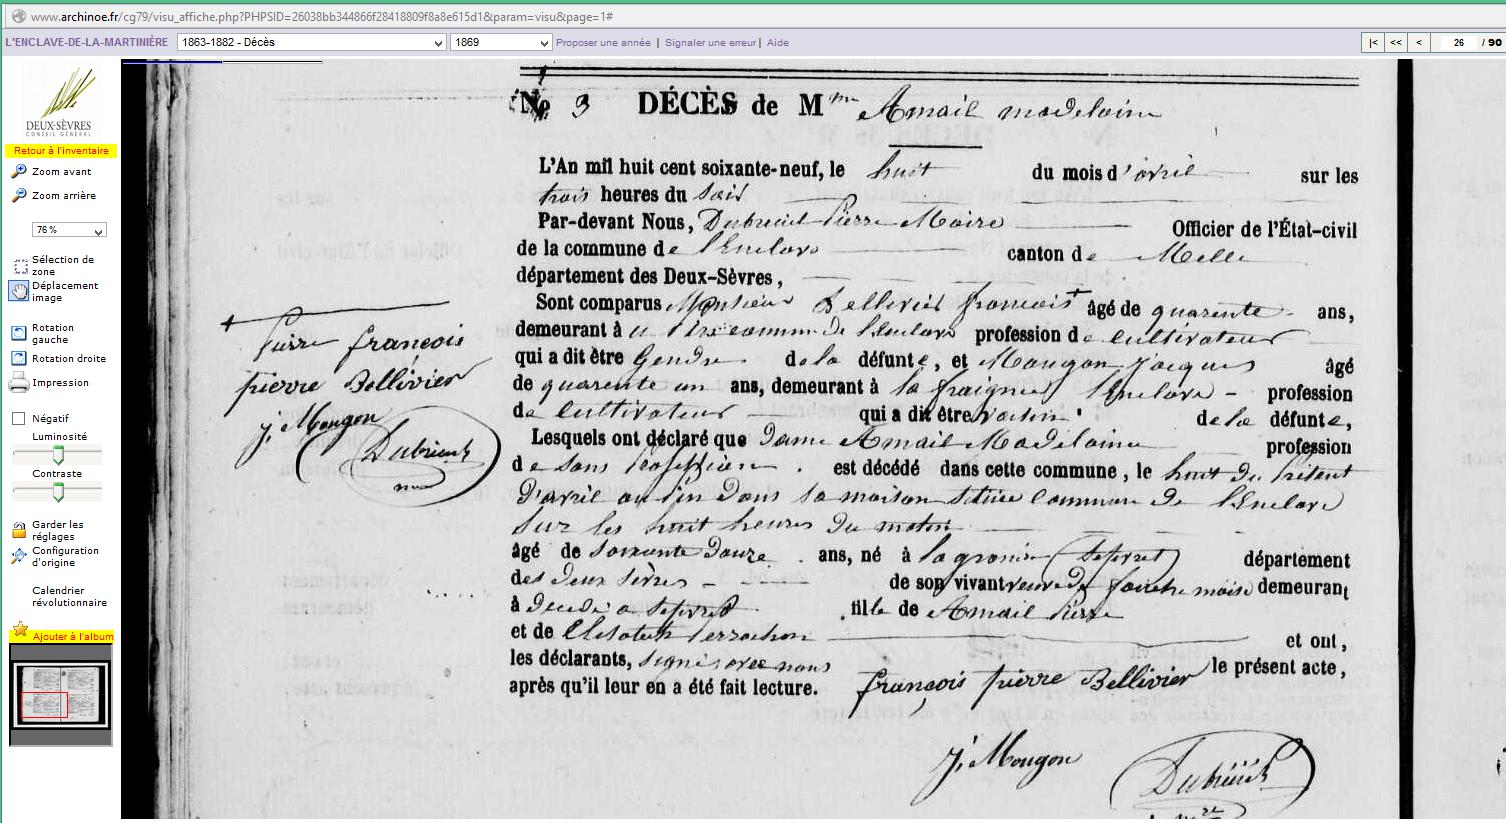 www.archinoe.fr/cg79/visu_affiche.php?PHPSID=26038bb344866f28418809f8a8e615d1&param=visu&page=1#
L'ENCLAVE-DE-LA-MARTINIÈRE 1863-1882 - Décès 1869 Proposer une année | Signaler une erreur | Aide |< << < 26 / 90
DEUX-SÈVRES
CONSEIL GÉNÉRAL
Retour à l'inventaire
Zoom avant
Zoom arrière
76 %
Sélection de
zone
Déplacement
image
Rotation
gauche
Rotation droite
Impression
Négatif
Luminosité
Contraste
Garder les
réglages
Configuration
d'origine
Calendrier
révolutionnaire
Ajouter à l'album
No 9 DÉCÈS de Mme Amail madelaine
L'An mil huit cent soixante-neuf, le huit du mois d'avril sur les
trois heures du soir
Par-devant Nous, Dubreuil Pierre Maire Officier de l'État-civil
de la commune de l'Enclave canton de Melle
département des Deux-Sèvres,
Sont comparus Monsieur Bellivier francois âgé de quarente ans,
demeurant à commune de l'Enclave profession de cultivateur
qui a dit être Gendre de la défunte, et Mougon Jacques âgé
de quarente un ans, demeurant à la fraignee l'Enclave profession
de cultivateur qui a dit être voisin de la défunte,
Lesquels ont déclaré que Dame Amail Madelaine profession
de sans Proffession est décédé dans cette commune, le huit du présent
d'avril dans sa maison située commune de l'Enclave
sur les huit heures du matin
âgé de soixante douze ans, né à la Sepvret département
des deux sèvres de son vivant veuve de demeurant
à Sepvret fille de Amail Pierre
et de et ont,
les déclarants, signé avec nous le présent acte,
après qu'il leur en a été fait lecture.
françois pierre Bellivier
J. Mougon
Dubreuil
Pierre françois
pierre Bellivier
J. Mougon
Dubreuil